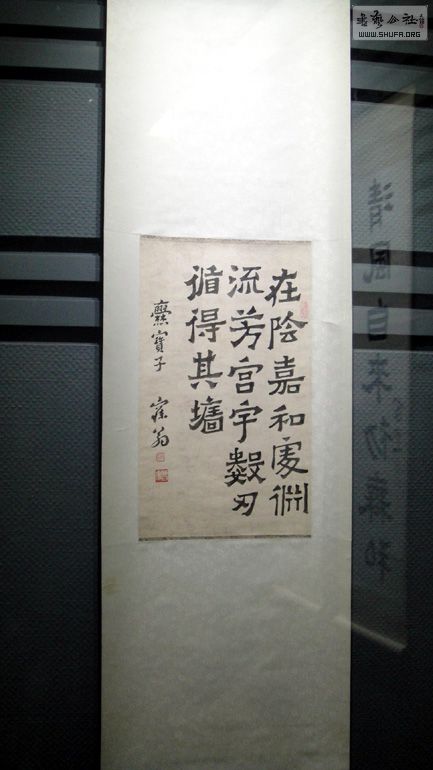 書藝公社
WWW.SHUFA.ORG
在陰嘉和處淵
流芳宮宇數刃
循得其墻
爨寶子 寐翁
清風自来